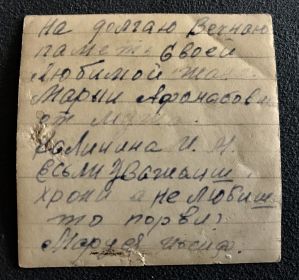 на долгаю Вечнаю
память Своей
Любимой
Марыи Афонасовны
от мужа
Калинина И. Н.
Есьли Уважаиш
хрони а не любиш
то порви
Маруся